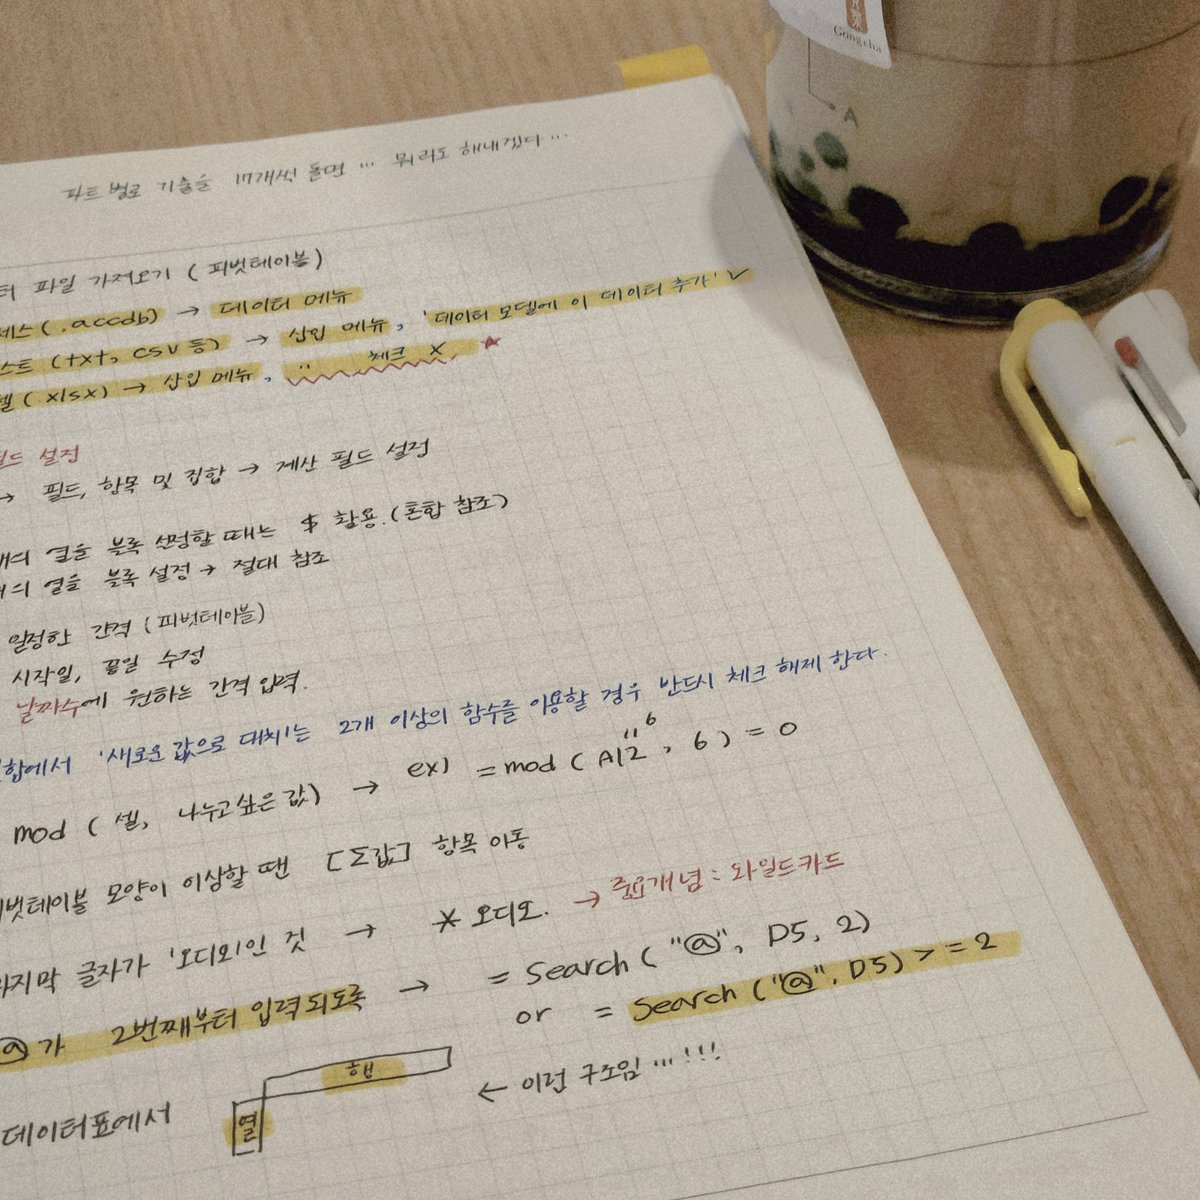 Gong cha
A
파트 별로 기출을 17개씩 돌면 ... 뭐라도 해내겠다 ...
터 파일 가져오기 (피벗테이블)
세스(.accdb) → 데이터 메뉴
스트 (txt, csv 등) → 삽입 메뉴, '데이터 모델에 이 데이터 추가' ✓
셀 (xlsx) → 삽입 메뉴, " 체크 X ★
필드 설정
→ 필드, 항목 및 집합 → 계산 필드 설정
개의 열을 블록 설정할 때는 $ 활용. (혼합 참조)
열을 블록 설정 → 절대 참조
일정한 간격 (피벗테이블)
시작일, 끝일 수정
날짜수에 원하는 간격 입력.
합에서 '새로운 값으로 대치'는 2개 이상의 함수를 이용할 경우 반드시 체크 해제 한다.
6
"
mod (셀, 나누고 싶은 값) → ex) =mod (A12, 6) = 0
벗테이블 모양이 이상할 땐 [Σ값] 항목 이동
마지막 글자가 '오디오'인 것 → * 오디오. → 중요개념 : 와일드카드
@가 2번째부터 입력되도록 → = Search ("@", D5, 2)
or = Search ("@", D5) >= 2
데이터표에서 열 행 ← 이런 구조임 ... !!!